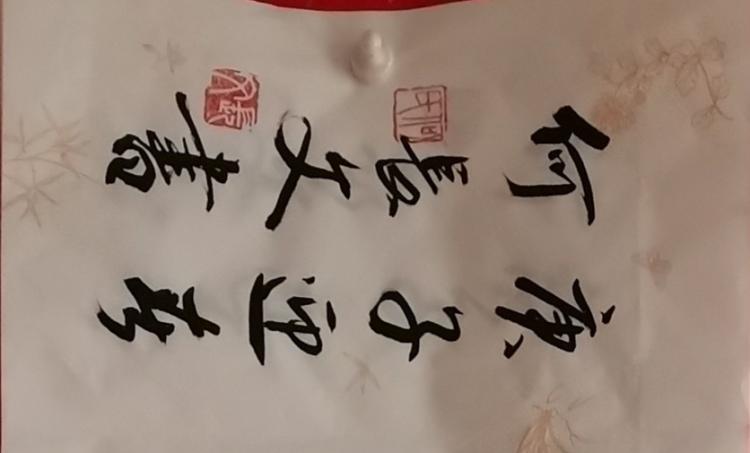 庚子迎春
何長文書